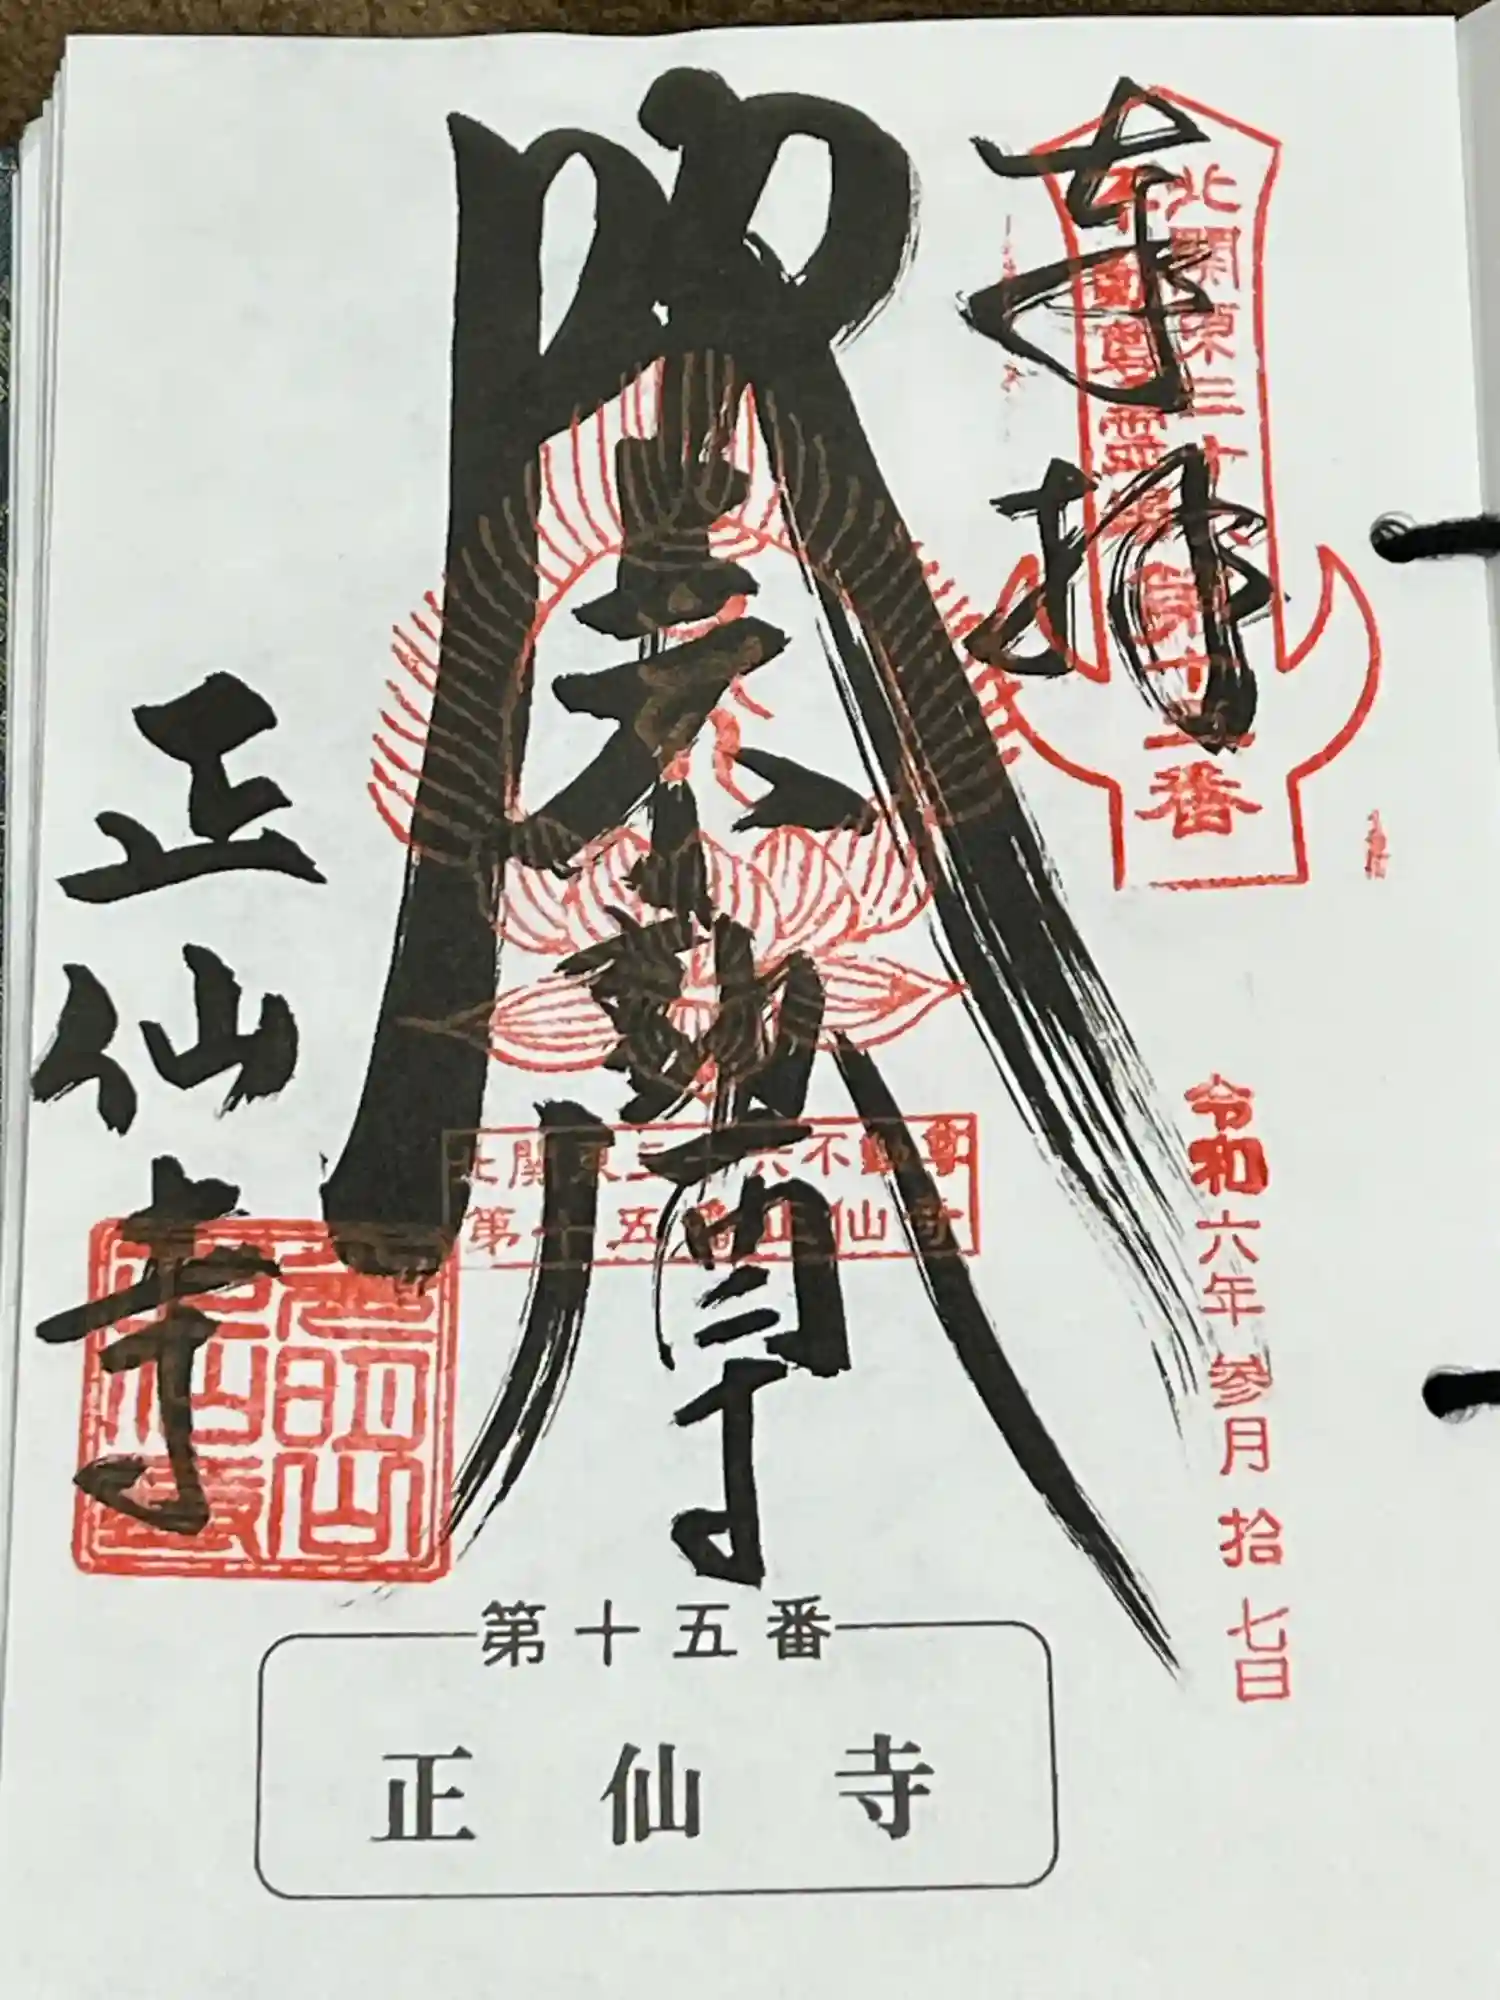 奉拝
北関東三十六
不動尊霊場
第十五番
令和六年参月拾七日
不動尊
北関東三十六不動尊
第十五番正仙寺
正仙寺
第十五番
正仙寺